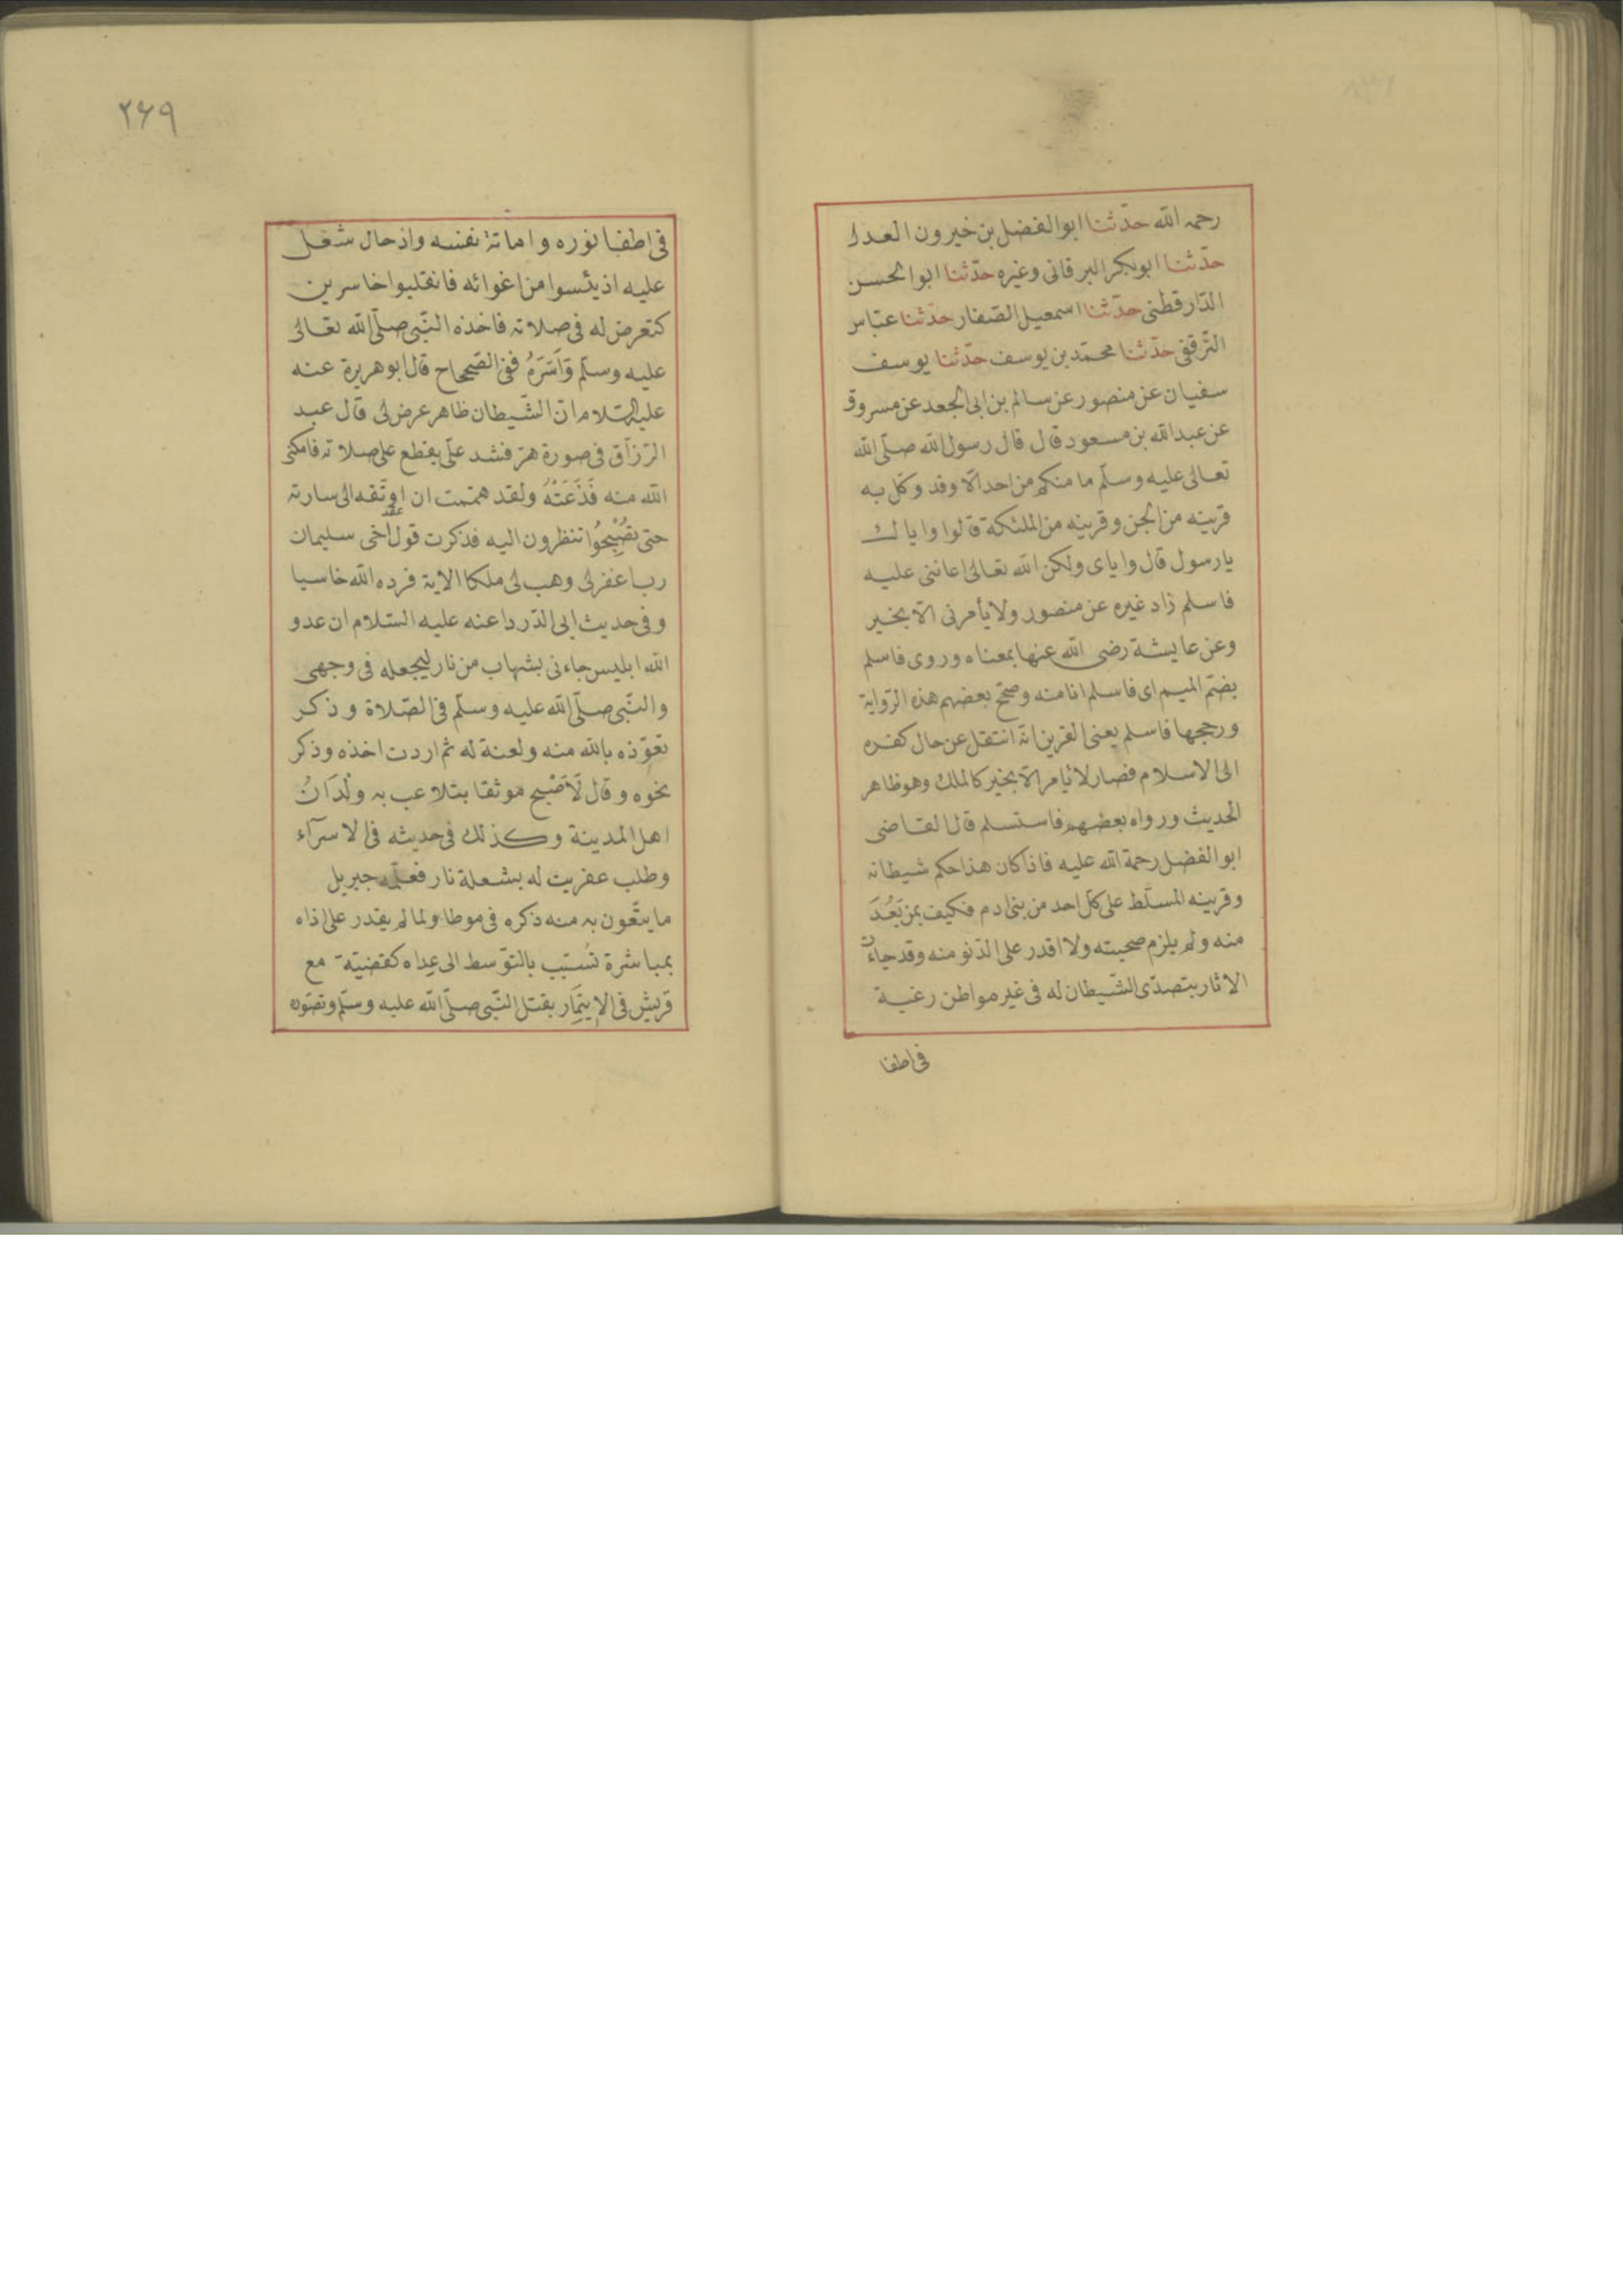 رحمه الله حدّثنا ابو الفضل بن خيرون العدل
حدّثنا ابو بكر البرقانى وغيره حدّثنا ابو الحسن
الدّارقطنى حدّثنا اسمعيل الصّفار حدّثنا عبّاس
التّرقفى حدّثنا محمّد بن يوسف حدّثنا يوسف
سفيان عن منصور عن سالم بن ابى الجعد عن مسروق
عن عبدالله بن مسعود قال قال رسول الله صلّى الله
تعالى عليه وسلّم ما منكم من احد الّا وقد وكّل به
قرينه من الجن وقرينه من الملئكة قالوا واياك
يا رسول قال واياى ولكن الله تعالى اعاننى عليه
فاسلم زاد غيره عن منصور ولا يأمرنى الّا بخير
وعن عايشة رضى الله عنها بمعناه وروى فاسلم
بضمّ الميم اى فاسلم انا منه وصحّح بعضهم هذه الرّواية
ورجحها فاسلم يعنى القرين انّه انتقل عن حال كفره
الى الاسلام فصار لا يأمر الّا بخير كالملك وهو ظاهر
الحديث ورواه بعضهم فاستسلم قال القاضى
ابو الفضل رحمة الله عليه فاذا كان هذا حكم شيطانه
وقرينه المسلّط على كلّ احد من بنى ادم فكيف بمن بَعُدَ
منه ولم يلزم صحبته ولا اقدر على الدّنو منه وقد جاءت
الاثار بتصدّى الشّيطان له فى غير مواطن رغبة
فى اطفا
٢٦٩
فى اطفا نوره واماتة نفسه وادخال شغل
عليه اذ يئسوا من اغوائه فانقلبوا خاسرين
كتعرض له فى صلاته فاخذه النّبى صلّى الله تعالى
عليه وسلّم وَاَسَرَهُ ففى الصّحاح قال ابو هريرة عنه
عليه السّلام انّ الشّيطان ظاهر عرض لى قال عبد
الرّزّاق فى صورة هرّ فشد علىّ يقطع على صلاته فامكنى
الله منه فَذَعَتّهُ ولقد هممت ان اوثّقه الى سارته
حتى تصْبِحُوا تنظرون اليه فذكرت قول اخى سليمان
رب اغفر لى وهب لى ملكا الاية فرده الله خاسيا
وفى حديث ابى الدّردا عنه عليه السّلام ان عدو
الله ابليس جاءنى بشهاب من نار ليجعله فى وجهى
والنّبى صلّى الله عليه وسلّم فى الصّلاة وذكر
تعوّذه بالله منه ولعنة له ثم اردت اخذه وذكر
نحوه وقال لَاَصْبح موثقا يتلاعب به وِلْدَانُ
اهل المدينة وكذلك فى حديثه فى الاسرآء
وطلب عفريت له بشعلة نار فعلّمه جبريل
ما يتعّون به منه ذكره فى موطا ولما لم يقدر على اذاه
بمباشرة تسّبب بالتوّسط الى عِداه كقضيّة مع
قريش فى الايتِمَار بقتل النّبى صلّى الله عليه وسلّم وتصّوه